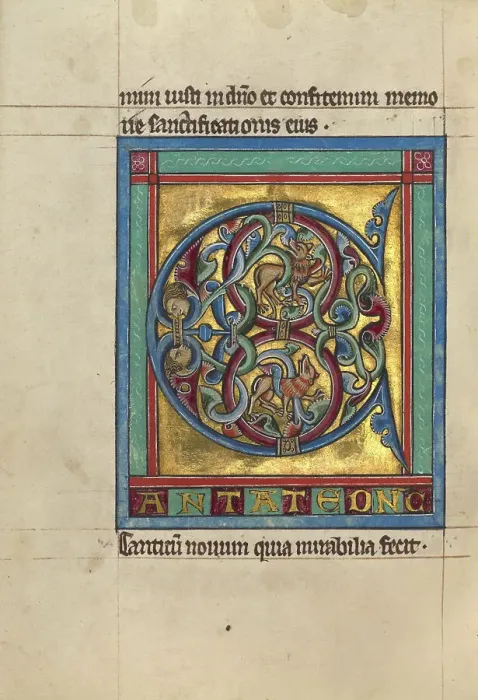 mini iusti in dño et confitemini memo
rie sanctificationis eius ·
C
ANTATE DNO
Canticū nouum quia mirabilia fecit ·